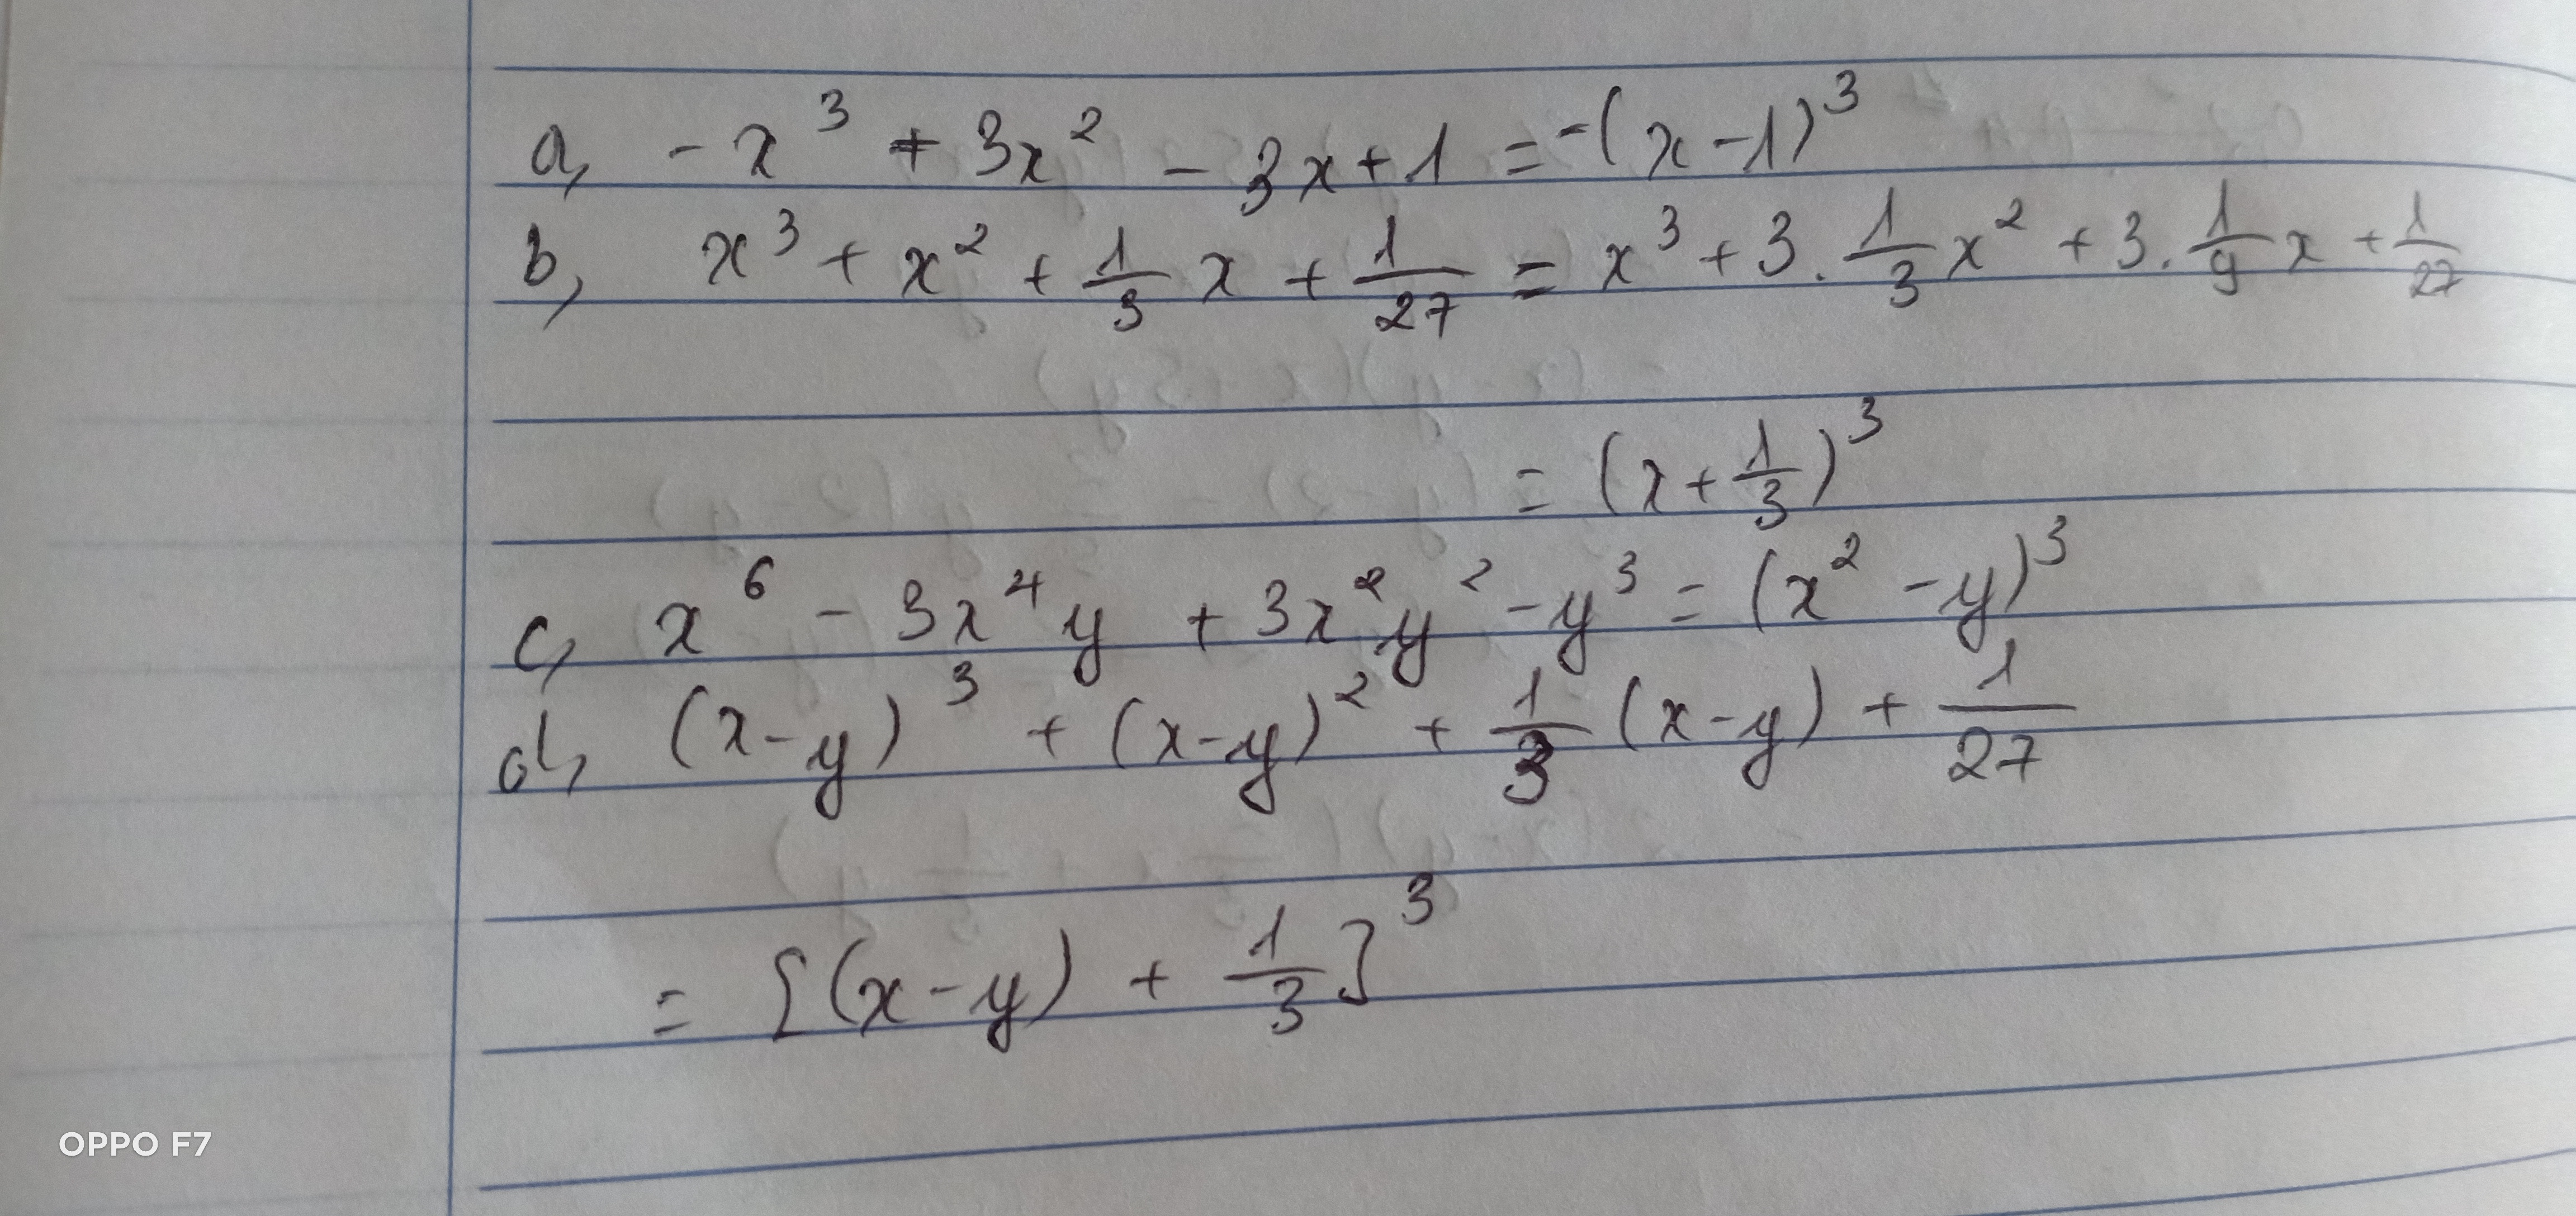 a, -x³ + 3x² - 3x + 1 = -(x - 1)³
b, x³ + x² + 1/3 x + 1/27 = x³ + 3 . 1/3 x² + 3 . 1/9 x + 1/27
= (x + 1/3)³
c, x⁶ - 3x⁴y + 3x²y² - y³ = (x² - y)³
d, (x - y)³ + (x - y)² + 1/3 (x - y) + 1/27
= [(x - y) + 1/3]³
OPPO F7